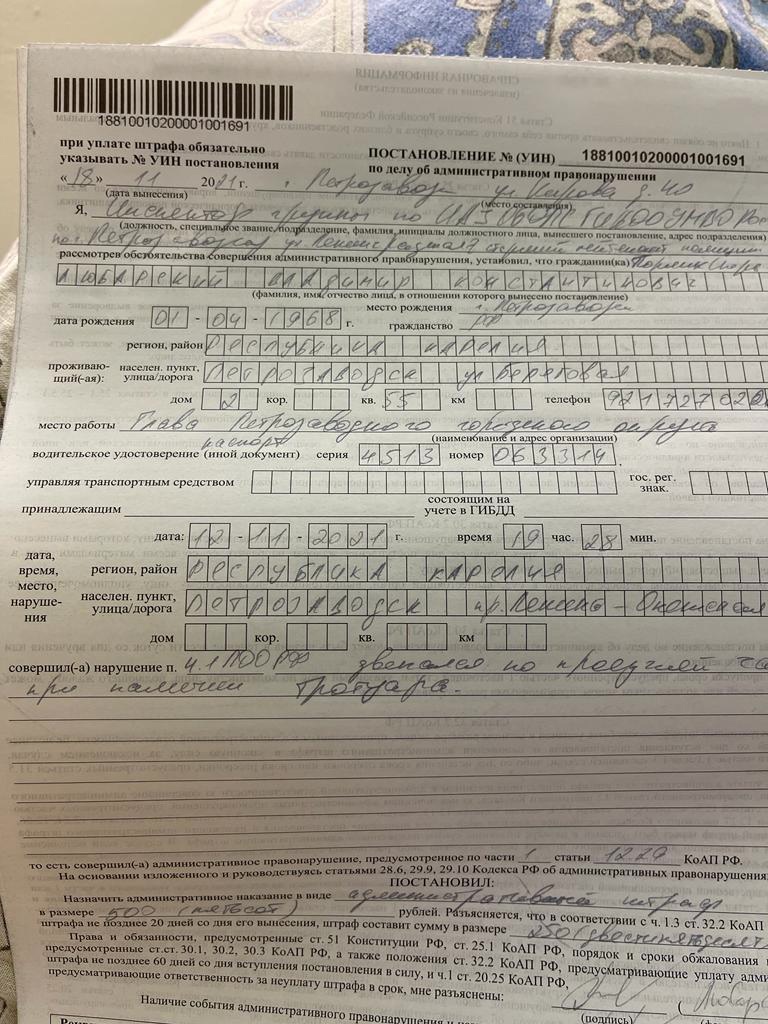 18810010200001001691
при уплате штрафа обязательно
указывать № УИН постановления
ПОСТАНОВЛЕНИЕ № (УИН) 18810010200001001691
по делу об административном правонарушении
«18» 11 2021 г. г. Петрозаводск ул Кирова д. 40
(дата вынесения) (место составления)
Я, Инспектор группы по ИАЗ ОБДПС ГИБДД
(должность, специальное звание, подразделение, фамилия, инициалы должностного лица, вынесшего постановление, адрес подразделения)
по г. Петрозаводску старший лейтенант полиции
рассмотрев обстоятельства совершения административного правонарушения, установил, что гражданин(ка)
ЛЮБАРСКИЙ ВЛАДИМИР КОНСТАНТИНОВИЧ
(фамилия, имя, отчество лица, в отношении которого вынесено постановление)
дата рождения 01 - 04 - 1968 г. место рождения г. Петрозаводск
гражданство РФ
регион, район РЕСПУБЛИКА КАРЕЛИЯ
проживаю-
щий(-ая): населен. пункт,
улица/дорога ПЕТРОЗАВОДСК ул Береговая
дом 2 кор. кв. 55 км телефон
место работы Глава Петрозаводского городского округа
(наименование и адрес организации)
паспорт
водительское удостоверение (иной документ) серия 4513 номер 063314
управляя транспортным средством гос. рег.
знак.
принадлежащим состоящим на
учете в ГИБДД
дата: 12 - 11 - 2021 г. время 19 час. 28 мин.
дата,
время,
место,
наруше-
ния
регион, район РЕСПУБЛИКА КАРЕЛИЯ
населен. пункт,
улица/дорога ПЕТРОЗАВОДСК пр. Ленина -
дом кор. кв. км
совершил(-а) нарушение п. 4.1 ПДД РФ двигался по проезжей
при наличии тротуара.
то есть совершил(-а) административное правонарушение, предусмотренное по части 1 статьи 12.29 КоАП РФ.
На основании изложенного и руководствуясь статьями 28.6, 29.9, 29.10 Кодекса РФ об административных правонарушения
ПОСТАНОВИЛ:
Назначить административное наказание в виде административный штраф
в размере 500 (пятьсот) рублей. Разъясняется, что в соответствии с ч. 1.3 ст. 32.2 КоАП
штрафа не позднее 20 дней со дня его вынесения, штраф составит сумму в размере 250 (двести пятьдесят
Права и обязанности, предусмотренные ст. 51 Конституции РФ, ст. 25.1 КоАП РФ, порядок и сроки обжалования
предусмотренные ст.ст. 30.1, 30.2, 30.3 КоАП РФ, а также положения ст. 32.2 КоАП РФ, предусматривающие уплату адми
штрафа не позднее 60 дней со дня вступления постановления в силу, и ч.1 ст. 20.25 КоАП РФ,
предусматривающие ответственность за неуплату штрафа в срок, мне разъяснены:
(подпись)
Наличие события административного правонарушения и